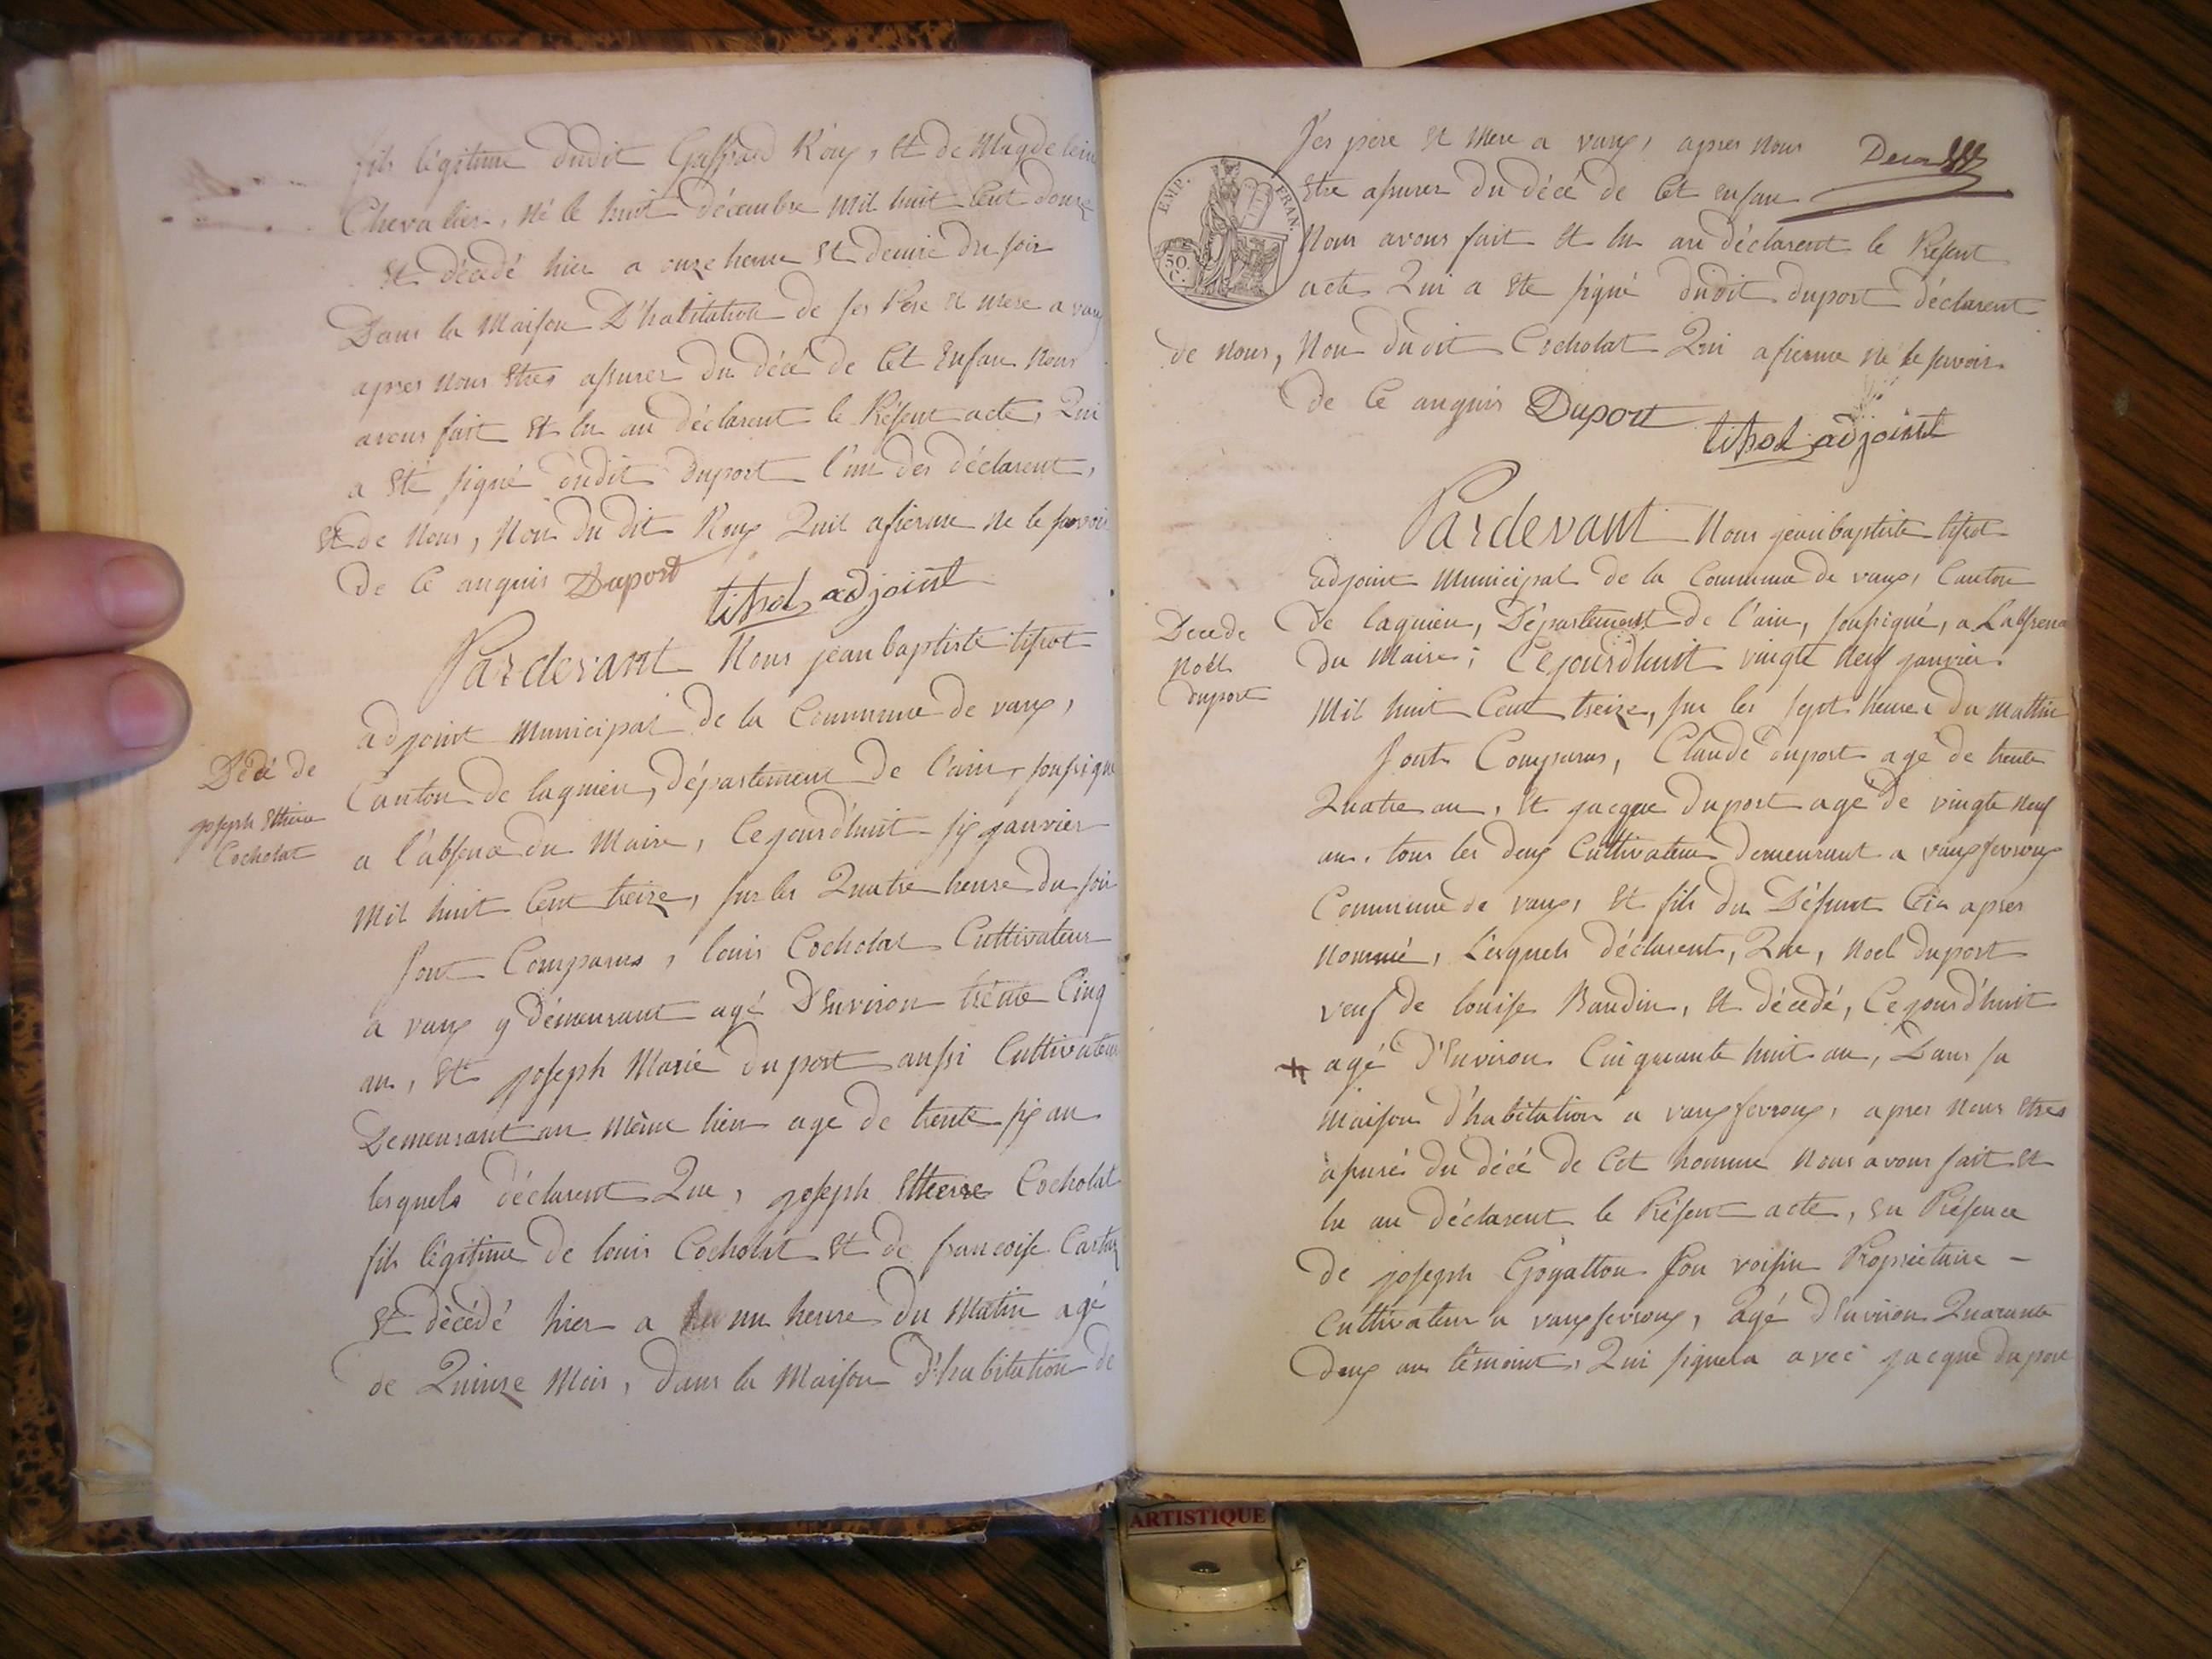 fils légitime dudit Gaspard Roux, Et de Magdeleine
Chevalier, né le huit décembre mil huit Cent douze
Et décédé hier a onze heure Et demie du soir
Dans la Maison D'habitation de ses Père Et mere a vaux
apres nous Etres assurer du décé de Cet Enfan Nous
avons fait Et lu au déclarent le Présent acte, Qui
a Eté signé dudit Duport l'un des déclarent,
Et de Nous, Non du dit Roux Quil afierme ne le savoir
de Ce anquis Duport
titrol adjoint
Pardevant Nous jean baptiste tissot
adjoint Municipal de la Commune de vaux,
Canton de lagnieu, département de l'ain, soussigné
a l'absence du Maire, Cejourdhuit six janvier
Mil huit Cent treize, sur les Quatre heure du soir
Sont Comparus, louis Cocholat Cultivateur
a vaux y démeurant agé D'Environ trente Cinq
an, Et joseph Marie duport aussi Cultivateur
Demeurant au même lieu age de trente six an
lesquels déclarent Que, joseph Ettiene Cocholat
fils légitime de louis Cocholat Et de francoise
Et décédé hier a une heure du Matin agé
de Quinze Mois, dans la Maison D'habitation de
Décé de
joseph Ettiene
Cocholat
Ses pere Et Mere a vaux, apres nous
Etre assurer du décé de Cet enfan
Nous avons fait Et lu au déclarent le Présent
acte Qui a Ete signé dudit duport déclarent
de nous, Non dudit Cocholat Qui afierme ne le savoir
de Ce anquis Duport
titrol adjoint
EMP. FRAN.
50 C.
Pardevant Nous jean baptiste tissot
adjoint Municipal de la Commune de vaux, Canton
de lagnieu, Département de l'ain, soussigné, a L'absence
du Maire; Cejourdhuit vingte Neuf janvier
Mil huit Cent treize, sur les sept heure du mattin
Sont Comparus, Claude duport agé de trente
Quatre an, Et jacque duport age de vingte Neuf
an, tous les deux Cultivateur demeurant a vauxfevroux
Commune de vaux, Et fils du Défunt Cia apres
Nommé, Lesquels déclarent, Que, Noel duport
veuf de louise Baudin, Et décedé, Cejourd'huit
agé D'Environ Cinquante huit an, Dans sa
maison d'habitation a vauxfevroux, apres Nous Etres
assurés du décé de Cet homme Nous avons fait Et
lu au déclarent le Présent acte, En Présence
de joseph Goyatton son voisin Propriétaire -
Cultivateur a vauxfevroux, agé d'Environ Quarante
deux an témoint, Qui signera avec jacque duport
Decede
Noël
duport
ARTISTIQUE